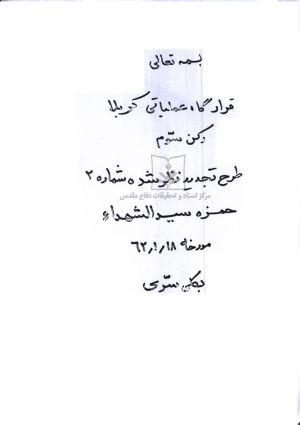 بسمه تعالی
قرارگاه عملیاتی کربلا
رکن سوم
طرح تجدید نظر شده شماره ۲
مرکز اسناد و تحقیقات دفاع مقدس
حمزه سیدالشهداء
مورخه ۶۲/۱/۱۸
بکلی سری